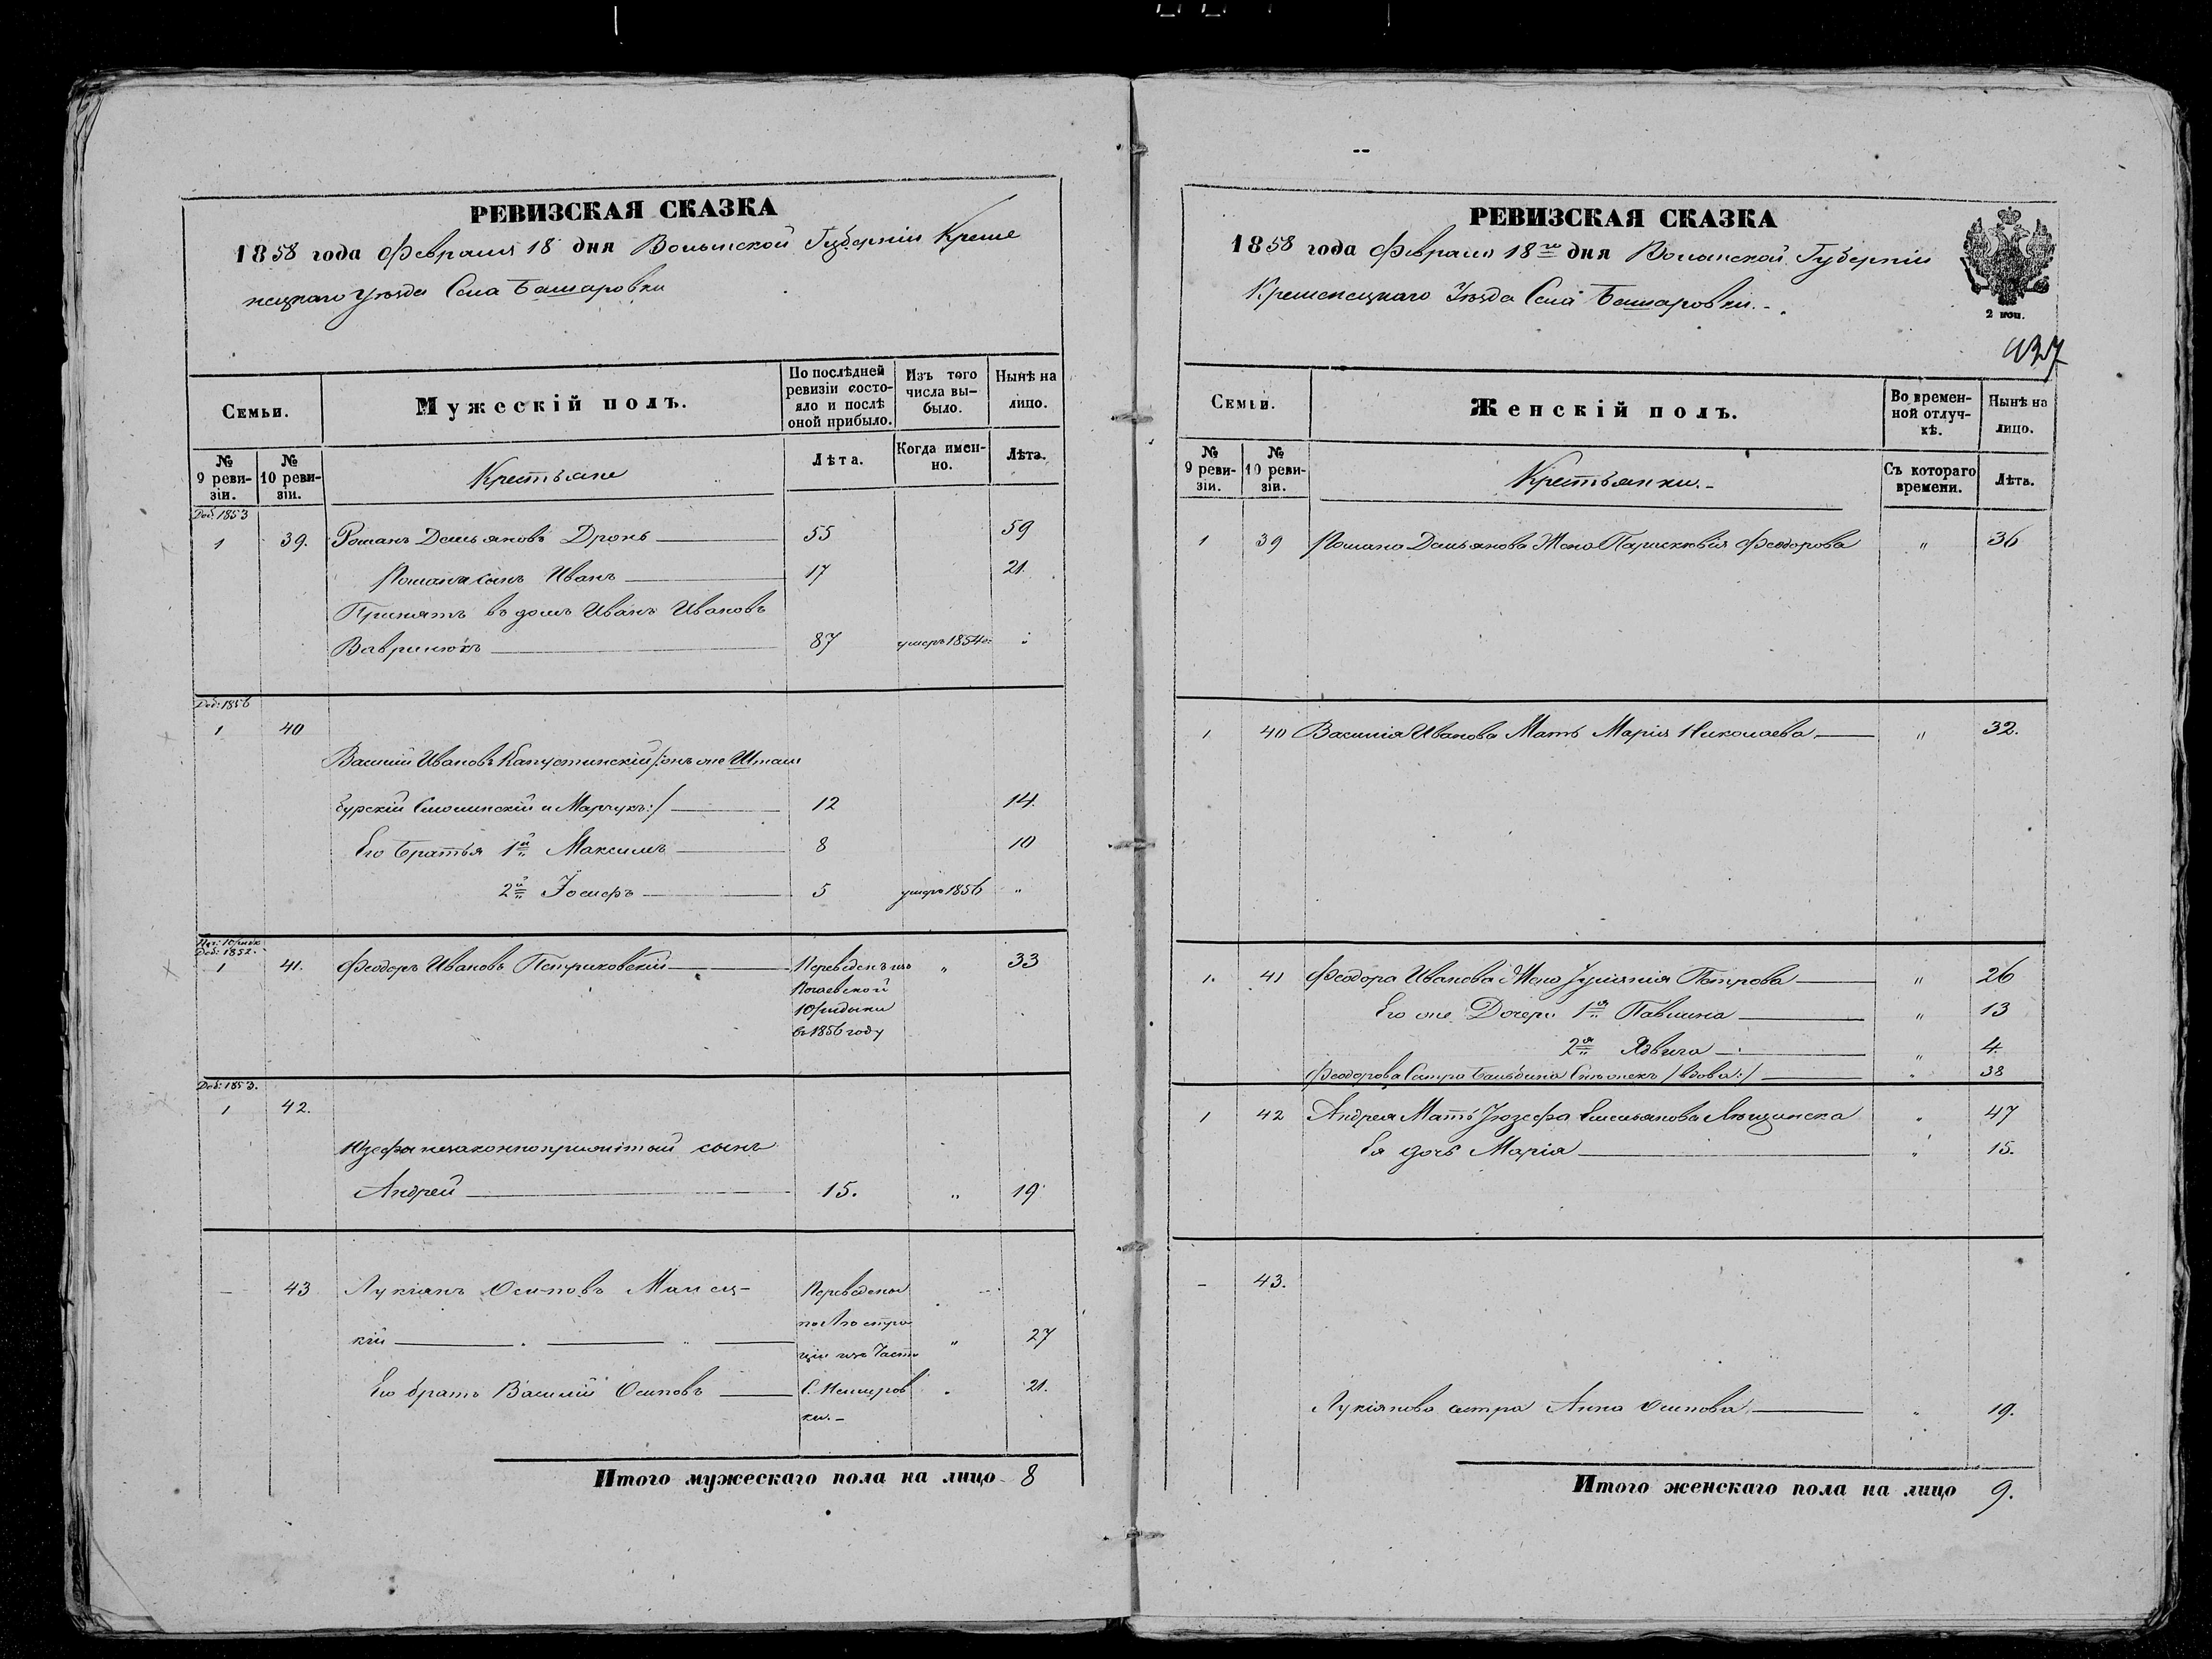 РЕВИЗСКАЯ СКАЗКА
1858 года Февраля 18 дня Волынской Губерніи Креме
нецкаго Уѣзда Села Башаровки
Семьи.
Мужескій полъ.
По послѣдней ревизіи состояло и послѣ оной прибыло.
Изъ того числа выбыло.
Нынѣ на лицо.
№ 9 ревизіи.
№ 10 ревизіи.
Крестьяне
Лѣта.
Когда именно.
Лѣта.
Доб: 1853
1 39. Романъ Демьяновъ Дронь 55 59
Романа сынъ Иванъ 17 21.
Принятъ въ домъ Иванъ Ивановъ
Вавринюкъ 87 умеръ 1854 „
Доб: 1856
1 40
Василій Ивановъ Капустинскій /:онъ же
Смолинскій и Марчукъ:/ 12 14.
Его Братья 1й Максимъ 8 10
2й Іосифъ 5 умеръ 1856 „
Доб: 1852.
1 41. Феодоръ Ивановъ Петриковскій Переведенъ изъ „ 33
Почаевской
Юридыки
въ 1856 году
Доб: 1853.
1 42.
Юзефы незаконноприжитый сынъ
Андрей 15. „ 19
— 43 Лукіянъ Осиповъ Переведены
кій „ 27
Его братъ Василій Осиповъ „ 21.
ки.-
Итого мужескаго пола на лицо 8
РЕВИЗСКАЯ СКАЗКА
1858 года Февраля 18го дня Волынской Губерніи
Кременецкаго Уѣзда Села Башаровки.-
2 коп.
Семьи.
Женскій полъ.
Во временной отлучкѣ.
Нынѣ на лицо.
№ 9 ревизіи.
№ 10 ревизіи.
Крестьянки.-
Съ котораго времени.
Лѣта.
1 39 Романа Демьянова Жена Парискевія Феодорова „ 36
1 40 Василія Иванова Мать Марія Николаева „ 32.
1. 41 Феодора Иванова Жена Іуліянія Петрова „ 26
Его же Дочери 1я Павлина „ 13
2я Ядвига „ 4.
Феодорова Сестра Бальбина /вдова:/ „ 38
1 42 Андрея Мать Іюзефа Емельянова „ 47
Ея дочь Марія „ 15.
- 43.
Лукіянова сестра Анна Осипова „ 19.
Итого женскаго пола на лицо 9.